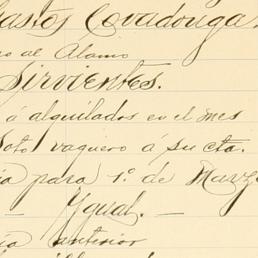 Gastos Covadonga.
ro al Alamo
Sirvientes.
á alquilados en el mes
Soto vaquero á su cta.
ia para 1º de Marzo
— Ygual. —
ia anterior